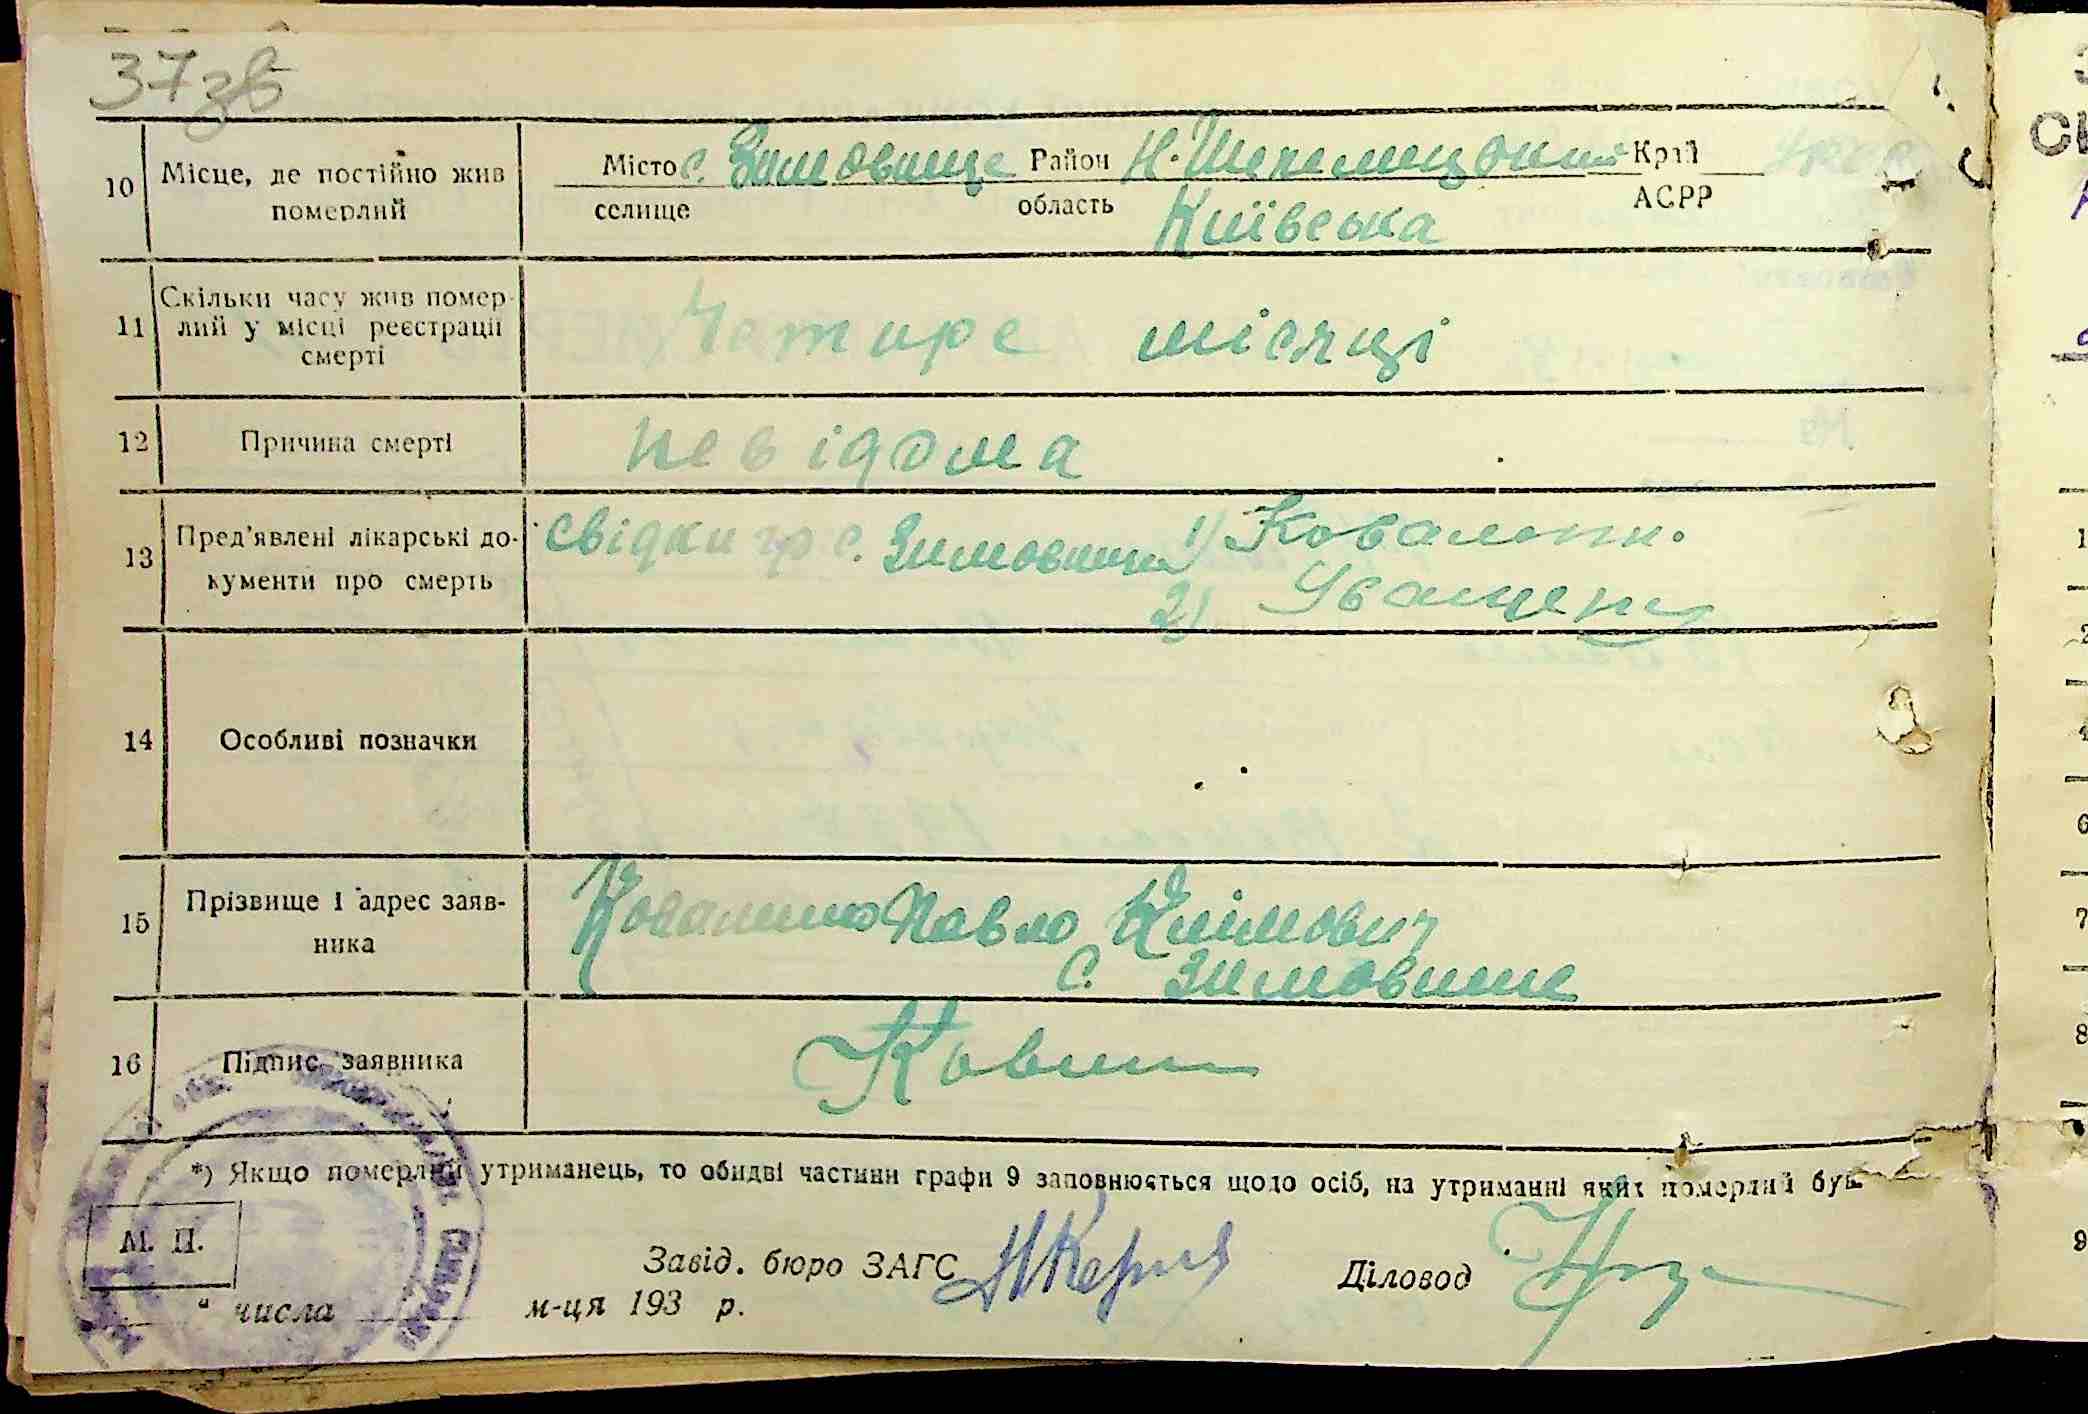 37зв
10 Місце, де постійно жив померлий
Місто с. Зимовище Район Н-Шепелицький Край
селище область Київська АСРР
11 Скільки часу жив помер-
лий у місці реєстрації
смерті
Четире місяці
12 Причина смерті невідома
13 Пред'явлені лікарські до-
кументи про смерть
свідки гр с. Зимовища 1) Коваленк.
2)
14 Особливі позначки
15 Прізвище і адрес заяв-
ника
Коваленко Павло Климович
с. Зимовище
16 Підпис заявника
*) Якщо померлий утриманець, то обидві частини графи 9 заповнюється щодо осіб, на утриманні яких померлий був.
М. П.
Завід. бюро ЗАГС
Діловод
" числа м-ця 193 р.